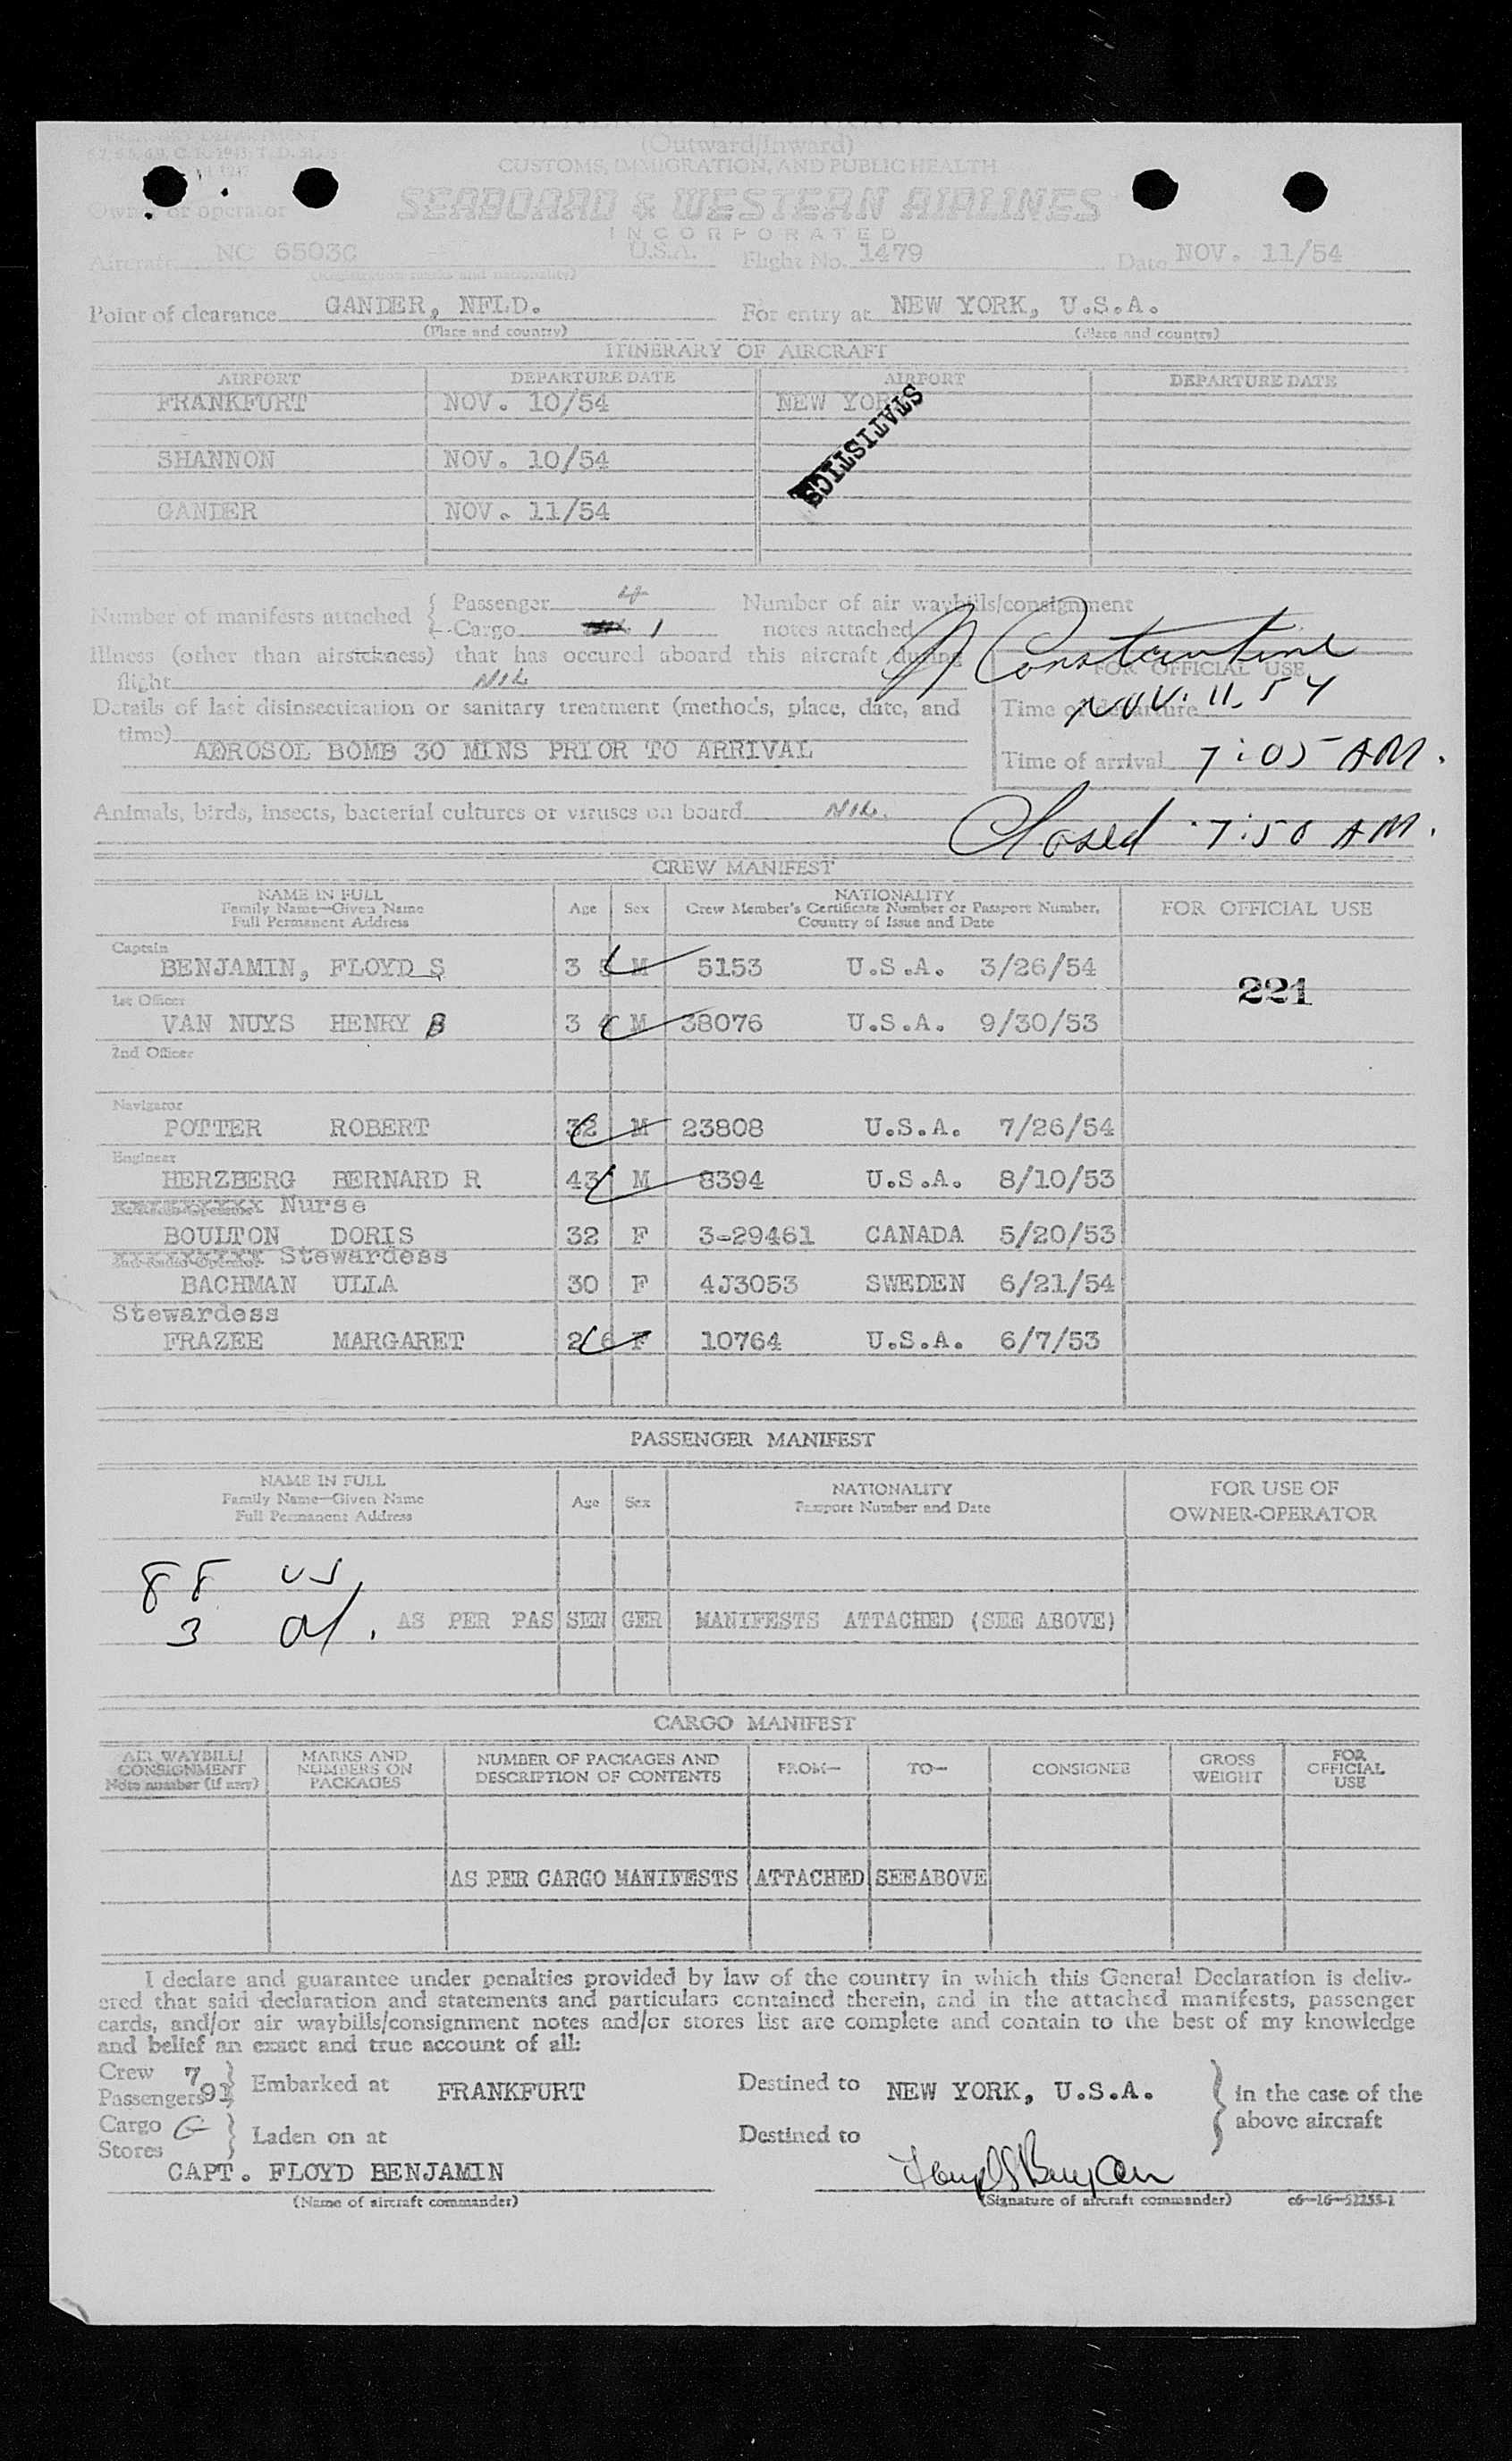 (Outward/Inward)
CUSTOMS, IMMIGRATION, AND PUBLIC HEALTH
SEABOARD & WESTERN AIRLINES
Owner or operator
INCORPORATED
Aircraft NC 6503C U.S.A. Flight No. 1479 Date NOV. 11/54
(Registration marks and nationality)
Point of clearance GANDER, NFLD. For entry at NEW YORK, U.S.A.
(Place and country) (Place and country)
ITINERARY OF AIRCRAFT
AIRPORT DEPARTURE DATE AIRPORT DEPARTURE DATE
FRANKFURT NOV. 10/54 NEW YORK
STATISTICS
SHANNON NOV. 10/54
GANDER NOV. 11/54
Number of manifests attached { Passenger 4 Number of air waybills/consignment
Cargo 1 notes attached
N Constantine
Illness (other than airsickness) that has occured aboard this aircraft during
flight NIL
FOR OFFICIAL USE
Details of last disinsectization or sanitary treatment (methods, place, date, and
time)
Time of departure NOV. 11. 54
AEROSOL BOMB 30 MINS PRIOR TO ARRIVAL
Time of arrival 7:05 AM.
Animals, birds, insects, bacterial cultures or viruses on board NIL.
Closed 7:50 AM.
CREW MANIFEST
NAME IN FULL
Family Name—Given Name
Full Permanent Address
Age Sex
NATIONALITY
Crew Member's Certificate Number or Passport Number,
Country of Issue and Date
FOR OFFICIAL USE
Captain
BENJAMIN, FLOYD S 3 5 M 5153 U.S.A. 3/26/54
221
1st Officer
VAN NUYS HENRY B 3 4 M 38076 U.S.A. 9/30/53
2nd Officer
Navigator
POTTER ROBERT 32 M 23808 U.S.A. 7/26/54
Engineer
HERZBERG BERNARD R 43 M 8394 U.S.A. 8/10/53
Nurse
BOULTON DORIS 32 F 3-29461 CANADA 5/20/53
Stewardess
BACHMAN ULLA 30 F 4J3053 SWEDEN 6/21/54
Stewardess
FRAZEE MARGARET 2 6 F 10764 U.S.A. 6/7/53
PASSENGER MANIFEST
NAME IN FULL
Family Name—Given Name
Full Permanent Address
Age Sex
NATIONALITY
Passport Number and Date
FOR USE OF
OWNER-OPERATOR
88 US
3 al. AS PER PAS SEN GER MANIFESTS ATTACHED (SEE ABOVE)
CARGO MANIFEST
AIR WAYBILL/
CONSIGNMENT
Note number (if any)
MARKS AND
NUMBERS ON
PACKAGES
NUMBER OF PACKAGES AND
DESCRIPTION OF CONTENTS
FROM— TO— CONSIGNEE
GROSS
WEIGHT
FOR
OFFICIAL
USE
AS PER CARGO MANIFESTS ATTACHED SEEABOVE
I declare and guarantee under penalties provided by law of the country in which this General Declaration is deliv-
ered that said declaration and statements and particulars contained therein, and in the attached manifests, passenger
cards, and/or air waybills/consignment notes and/or stores list are complete and contain to the best of my knowledge
and belief an exact and true account of all:
Crew 7
Passengers 91 } Embarked at FRANKFURT Destined to NEW YORK, U.S.A. } in the case of the
above aircraft
Cargo
Stores } Laden on at Destined to
CAPT. FLOYD BENJAMIN Floyd S Benjamin
(Name of aircraft commander) (Signature of aircraft commander) c6—16—52255-1